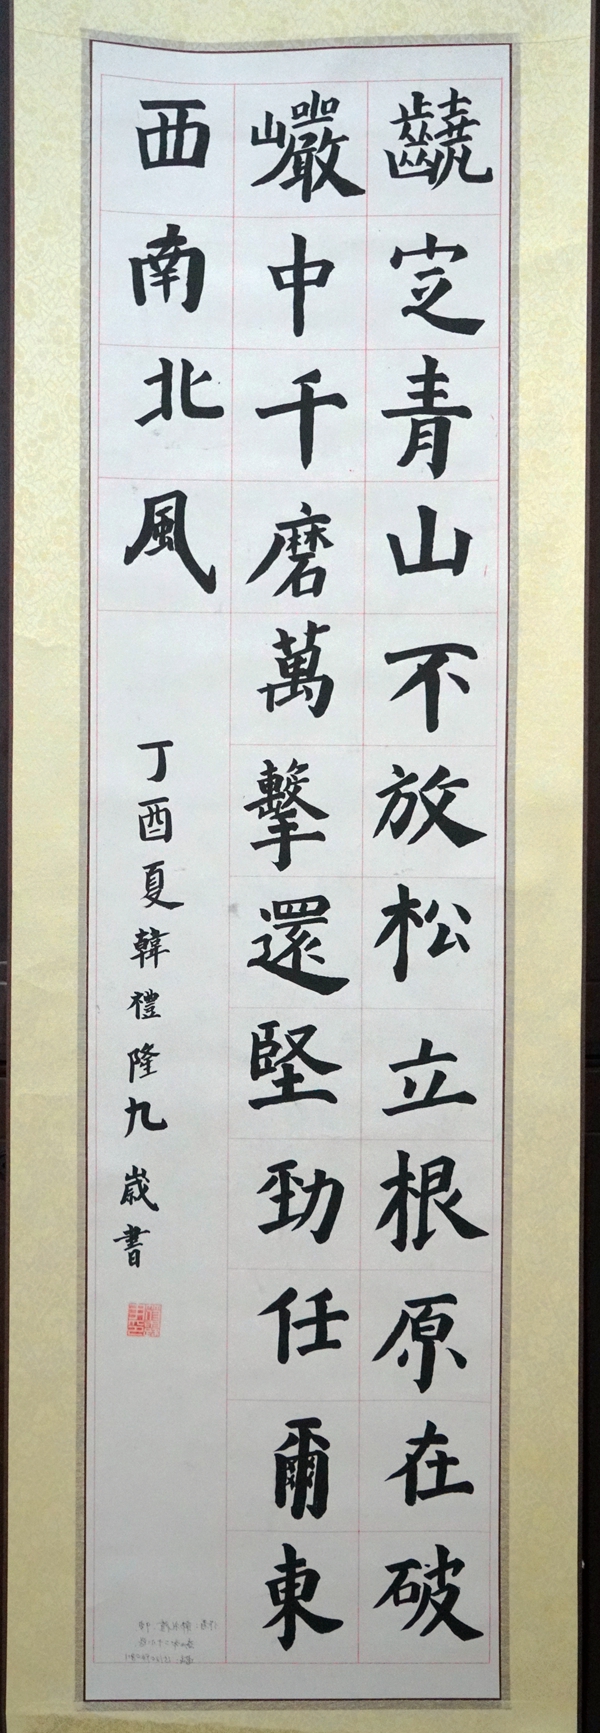 定青山不放松立根原在破
巗中千磨萬擊還堅勁任爾東
西南北風
丁酉夏韓禮隆九歲書